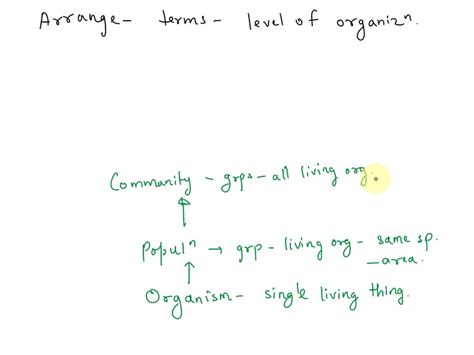 Arrange- terms- level of organizⁿ.
Community - grps - all living org.
Populⁿ → grp - living org - same sp.
- area.
Organism - single living thing.